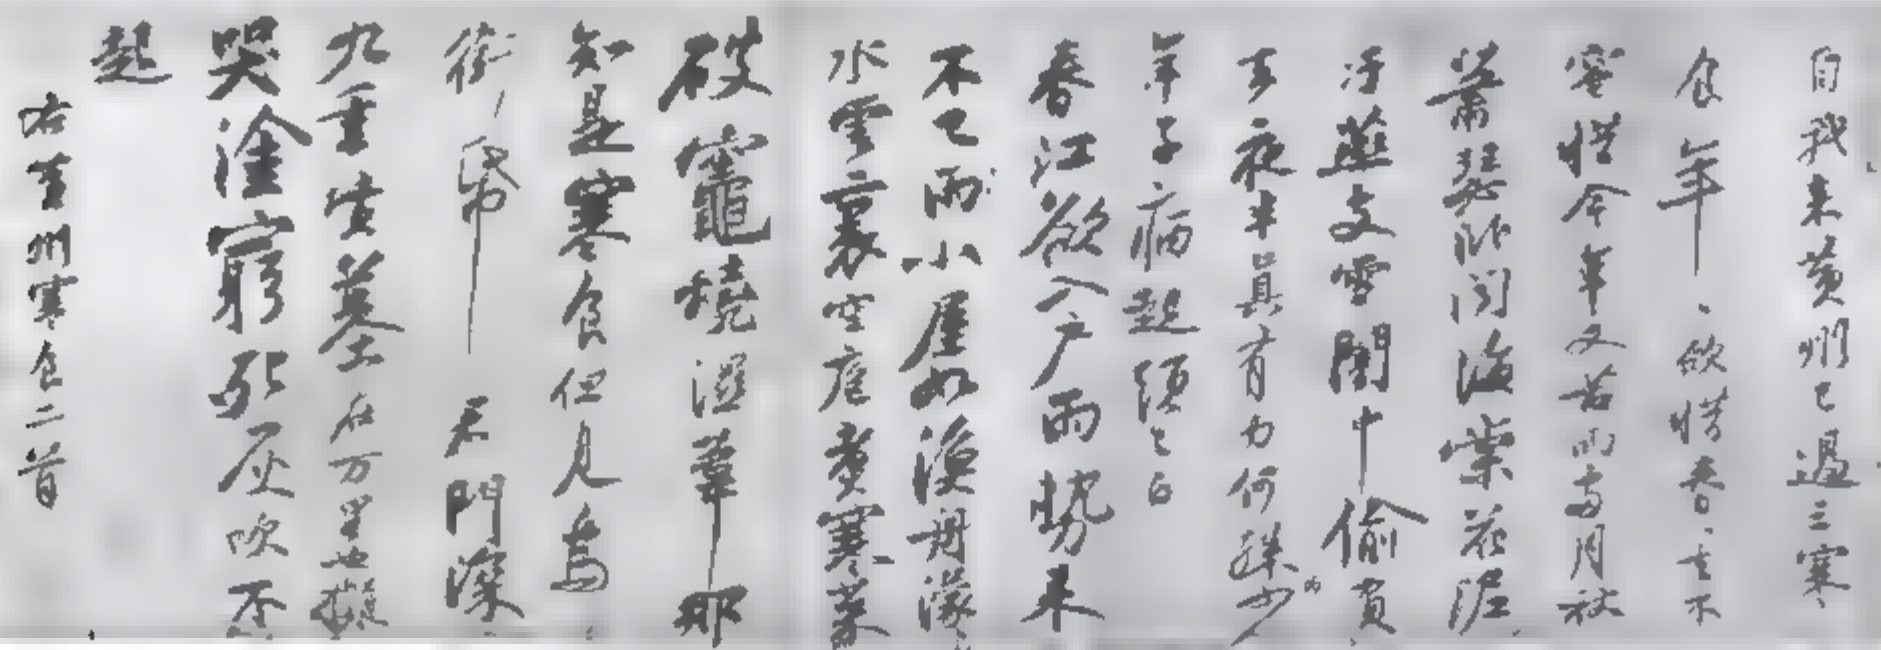 自我来黄州已過三寒
食年年欲惜春春去不
容惜今年又苦雨兩月秋
蕭瑟卧聞海棠花泥
汙燕支雪闇中偷負
去夜半真有力何殊少
年子病起頭已白
春江欲入户雨勢来
不已雨小屋如漁舟濛濛
水雲裏空庖煮寒菜
破竈燒濕葦那
知是寒食但見烏
銜帋君門深
九重墳墓在万里也擬
哭塗窮死灰吹不
起
右黄州寒食二首